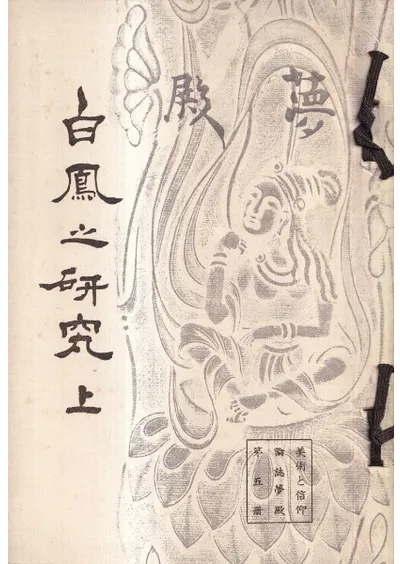 夢殿
白鳳之研究 上
美術と信仰
論誌夢殿
第五册